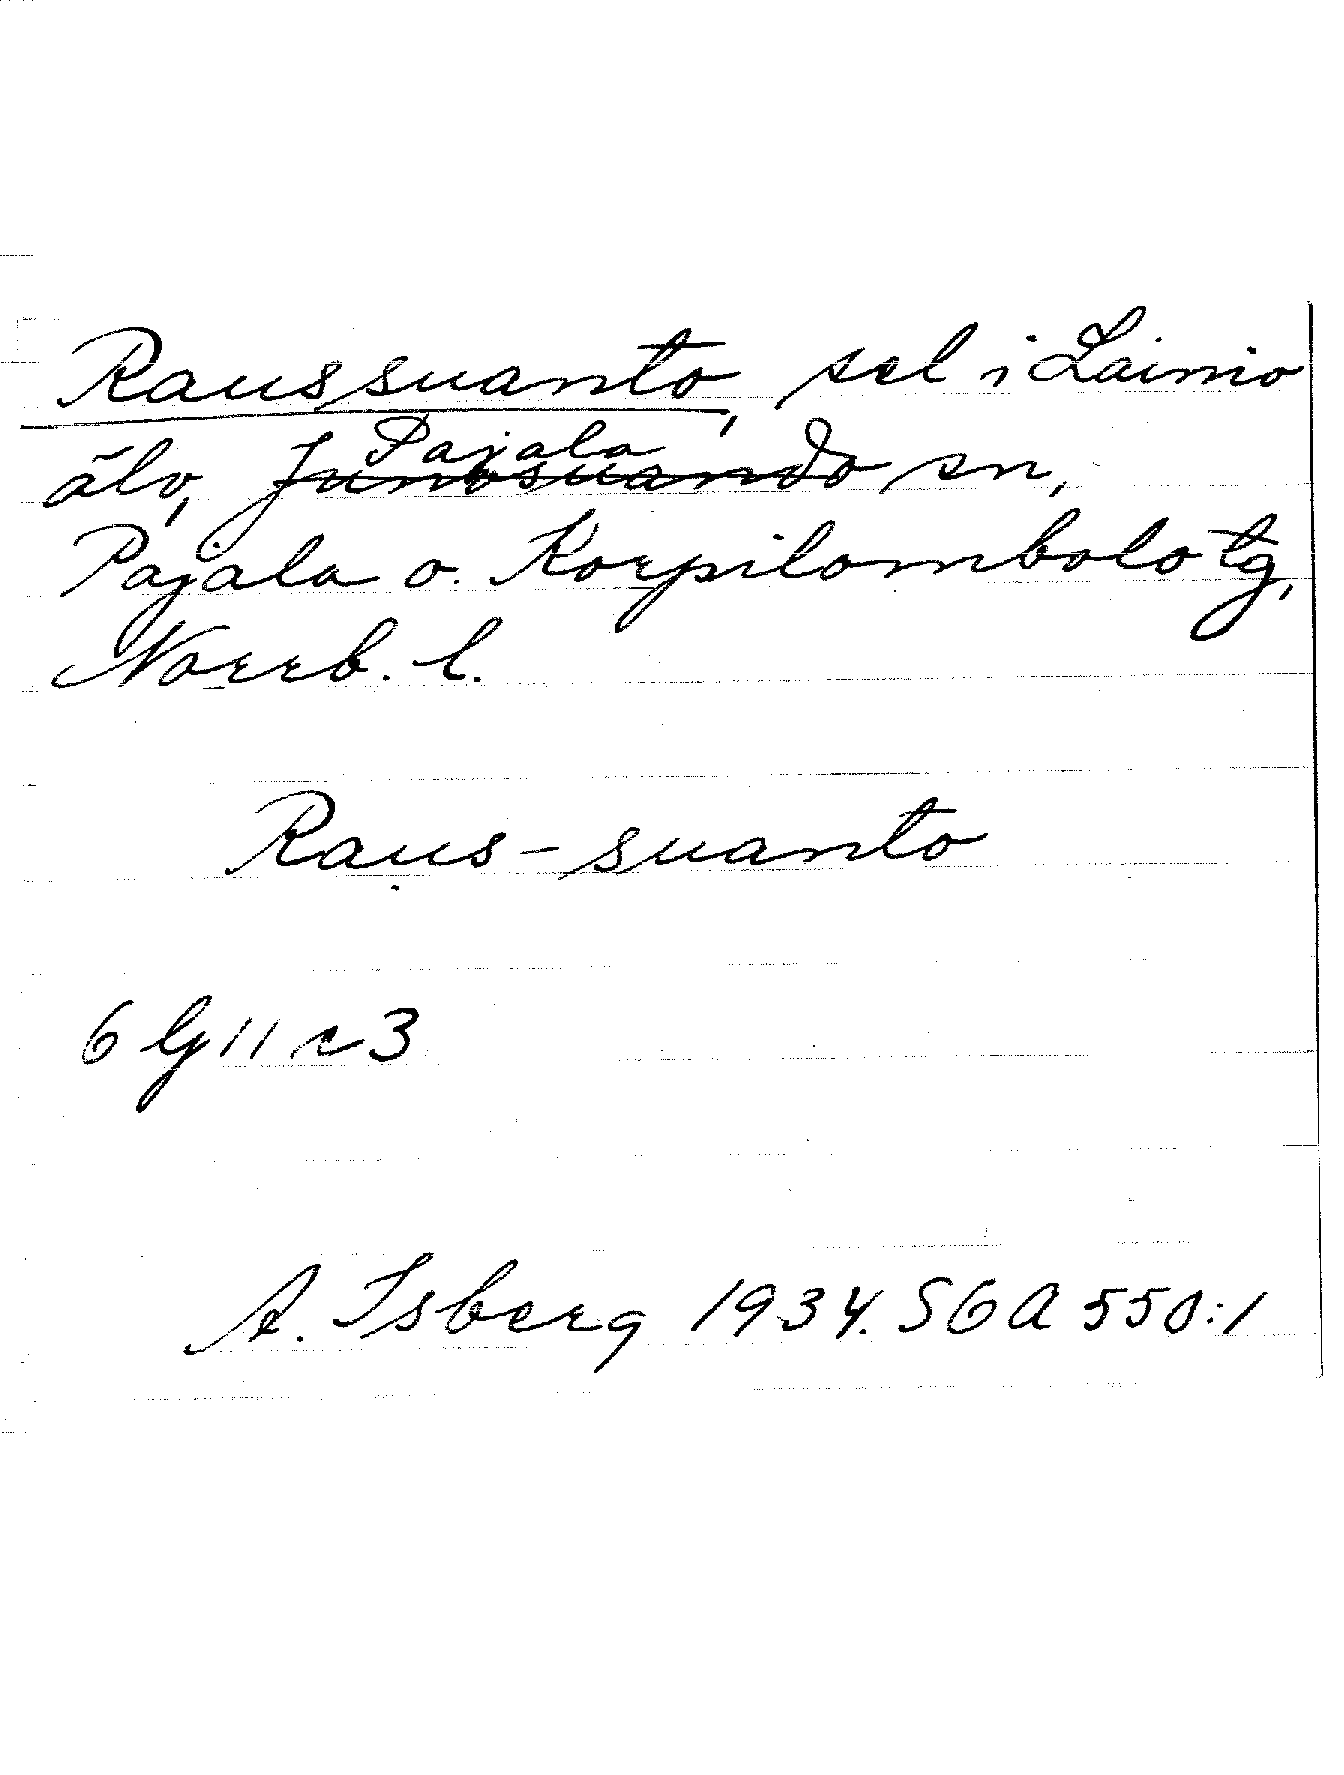 Raussuanto, sel i Lainio
älv, Junosuando Pajala sn,
Pajala o. Korpilombolo tg,
Norrb. l.
Raus-suanto
6 G 11 c 3
A. Isberg 1934. SGA 550:1